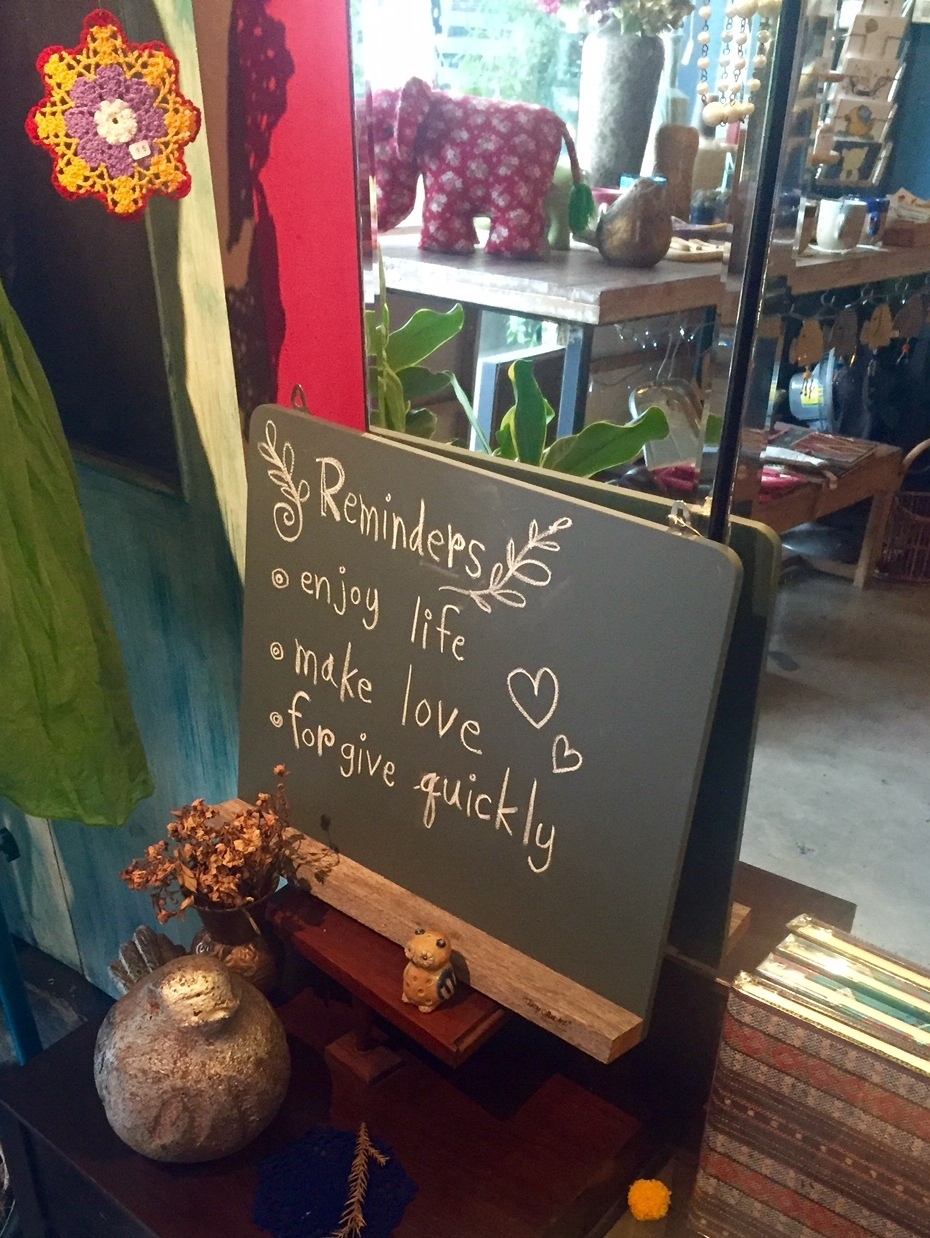 Reminders
enjoy life
make love
forgive quickly